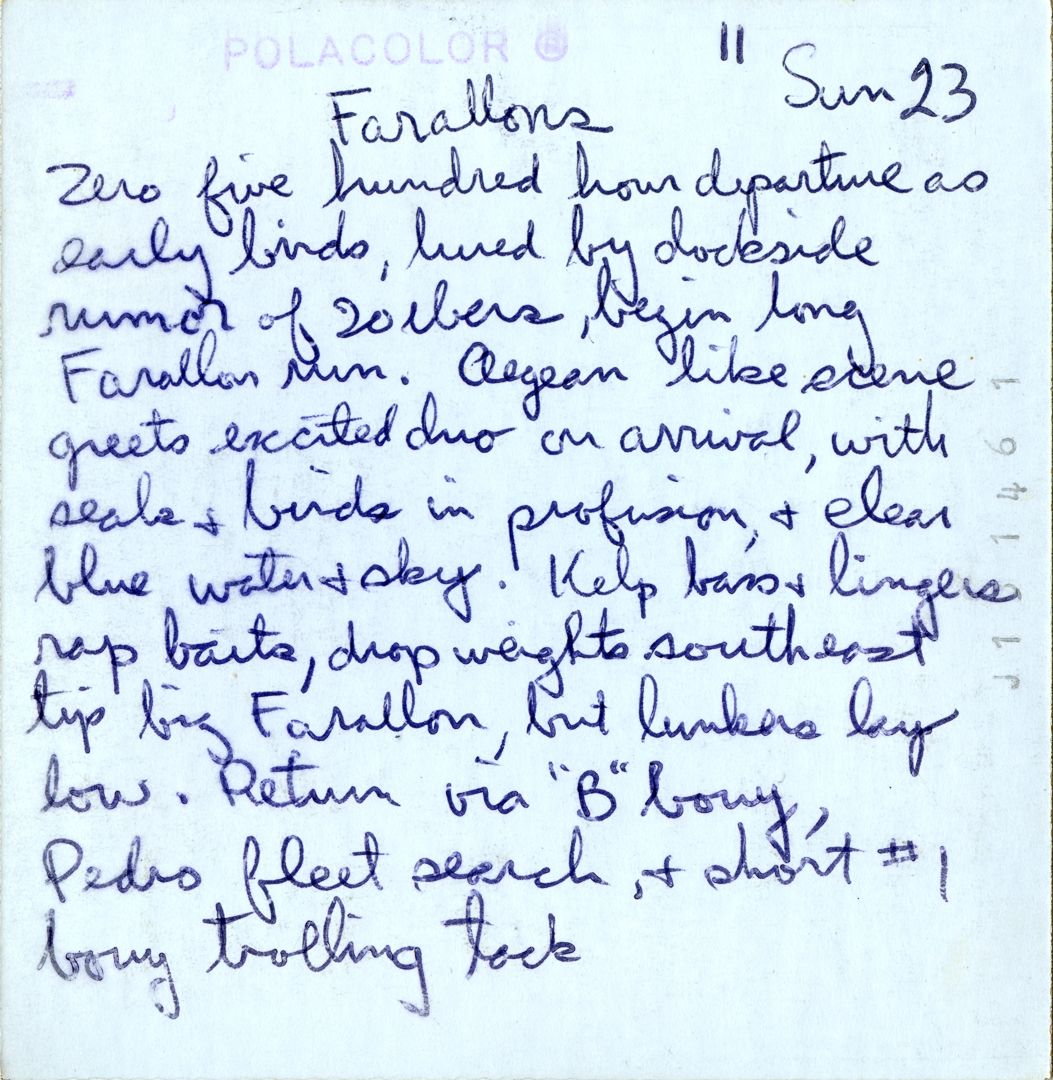 POLACOLOR ®
"
Sun 23
Farallons
Zero five hundred hour departure as
early birds, lured by dockside
rumor of 20 lbers, begin long
Farallon run. Aegean like scene
greets excited duo on arrival, with
seals + birds in profusion, + clear
blue water + sky. Kelp bass + lingers
rap baits, drop weights southeast
tip big Farallon, but lunkers lay
low. Return via "B" bouy,
Pedro fleet search, + short #1
bouy trolling tack
J151461